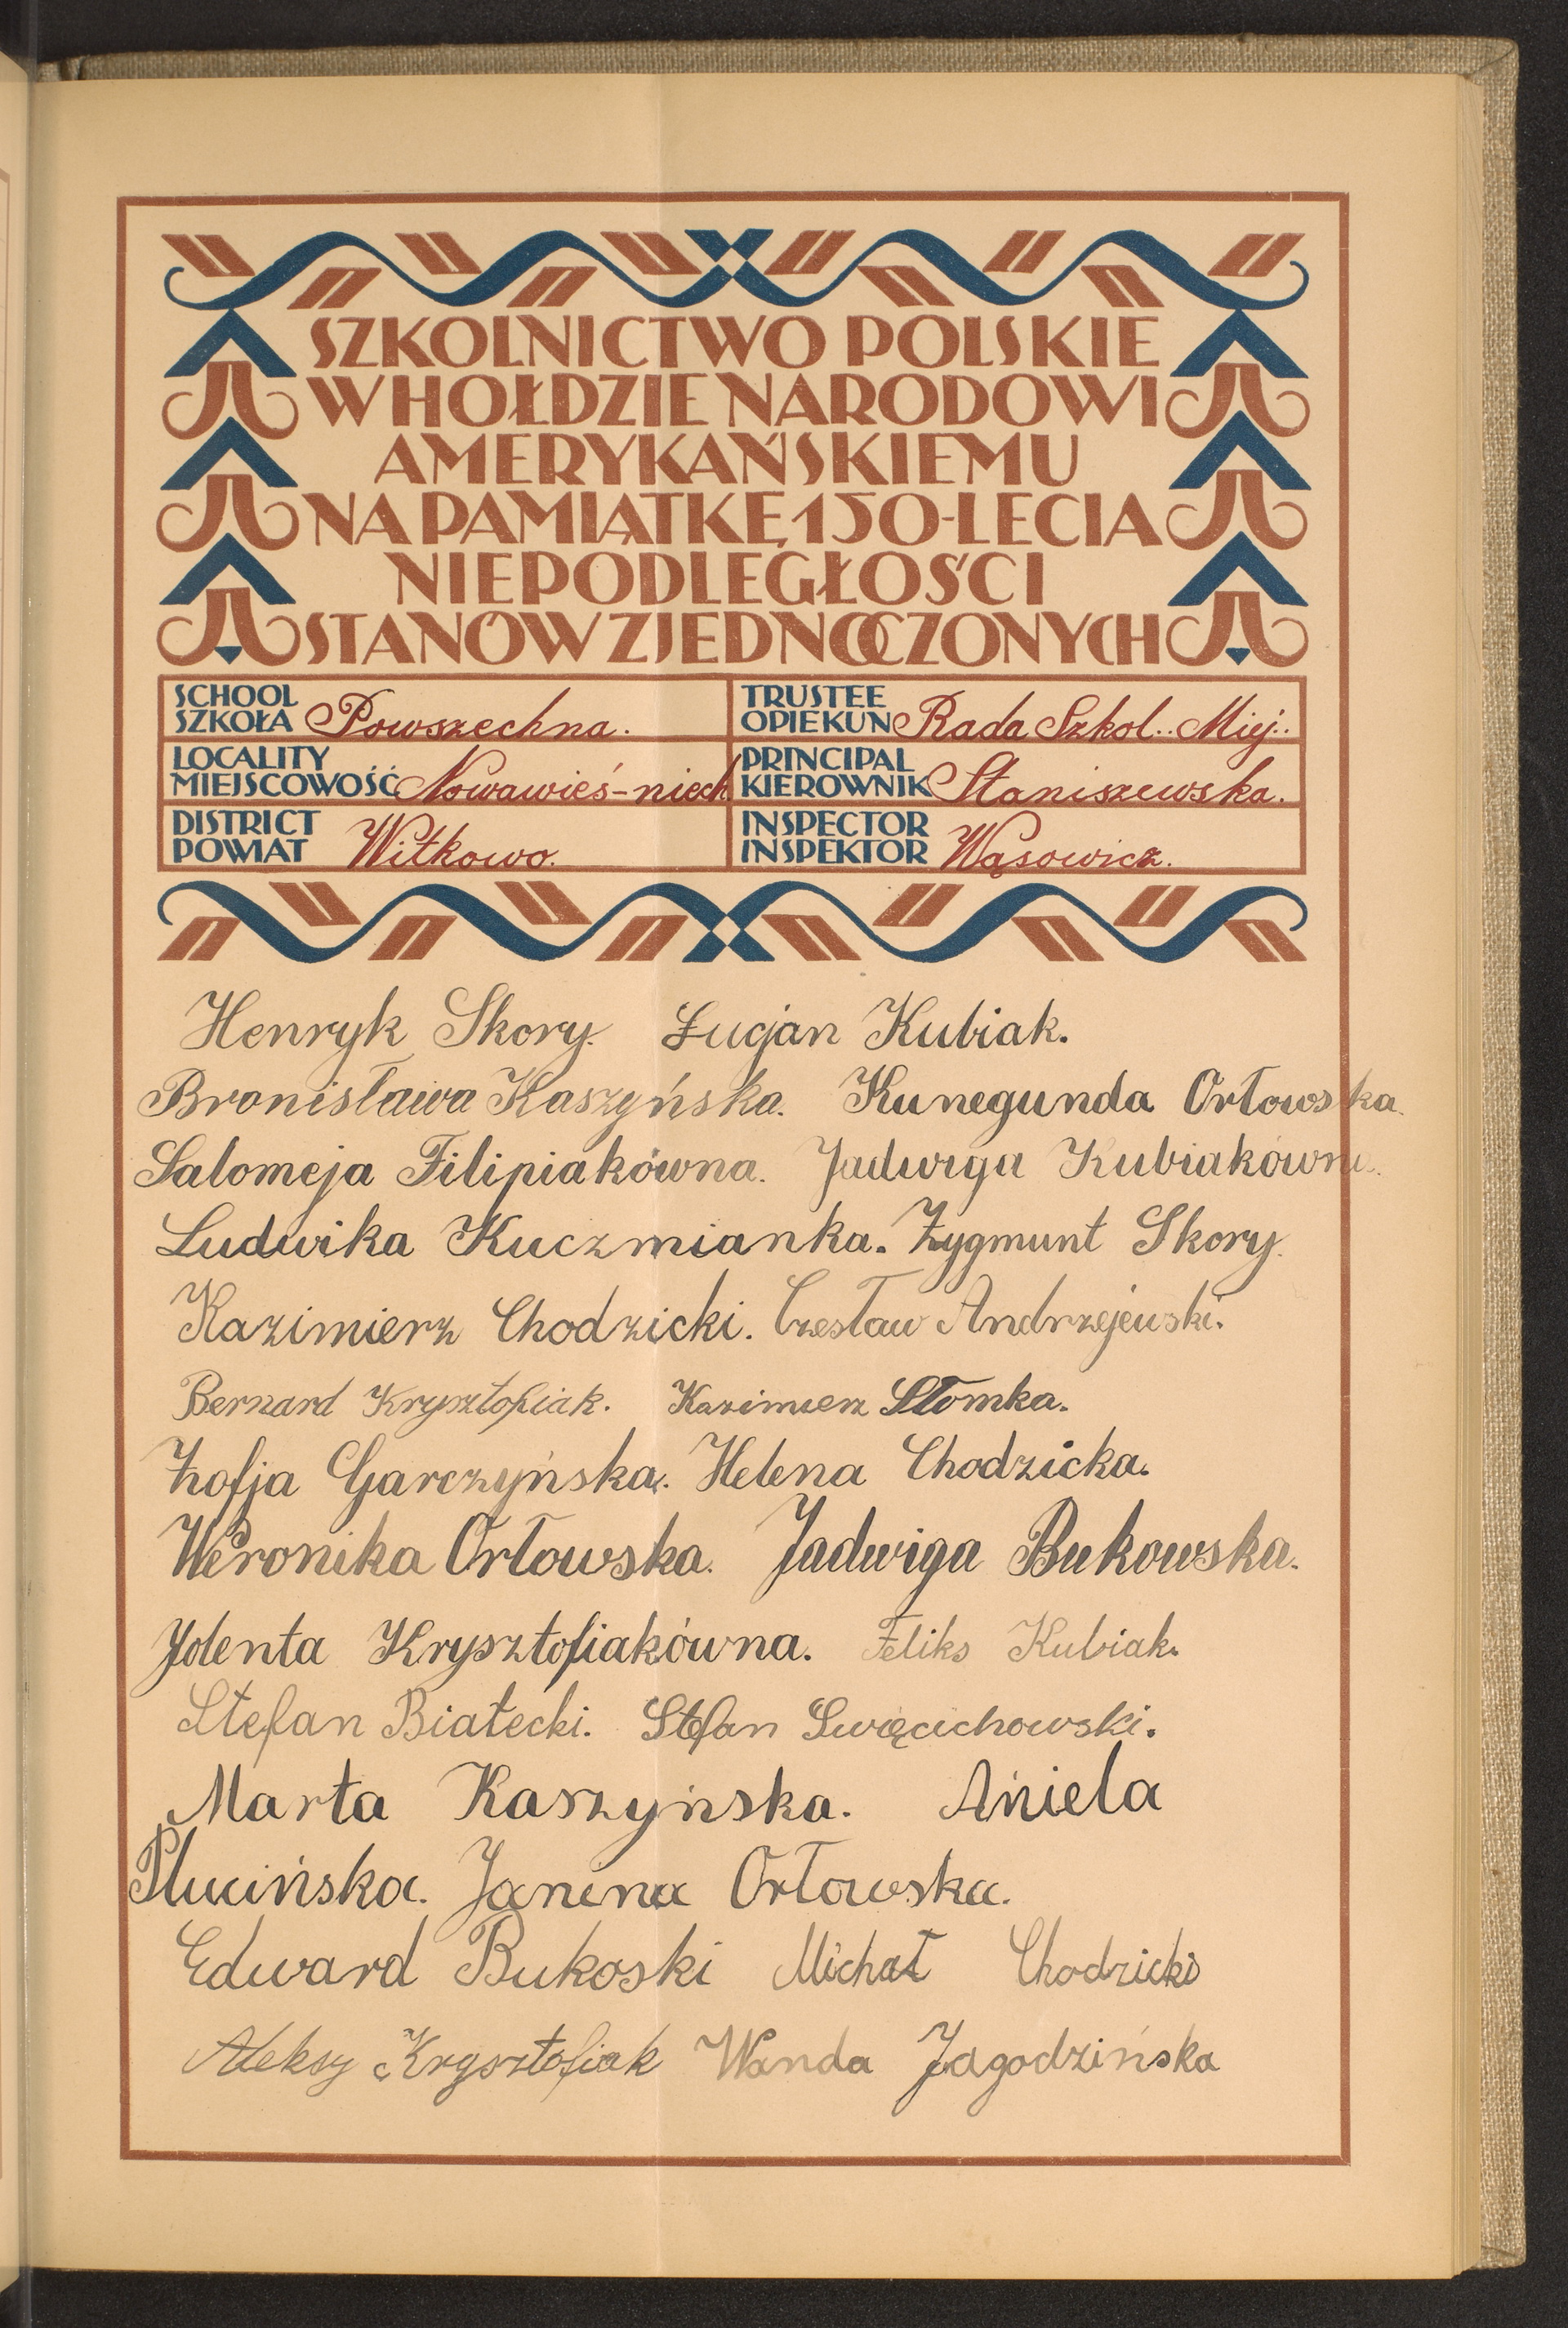 SZKOLNICTWO POLSKIE
W HOŁDZIE NARODOWI
AMERYKAŃSKIEMU
NA PAMIĄTKĘ 150-LECIA
NIEPODLEGŁOŚCI
STANÓW ZJEDNOCZONYCH
SCHOOL
SZKOŁA Powszechna.
TRUSTEE
OPIEKUN Rada Szkol.. Miej..
LOCALITY
MIEJSCOWOŚĆ Nowawieś-niech.
PRINCIPAL
KIEROWNIK Staniszewska.
DISTRICT
POWIAT Witkowo.
INSPECTOR
INSPEKTOR Wąsowicz.
Henryk Skory. Łucjan Kubiak.
Bronisława Kaszyńska. Kunegunda Orłowska.
Salomeja Filipiakówna. Jadwiga Kubiakówna.
Ludwika Kuczmianka. Zygmunt Skory.
Kazimierz Chodzicki. Czesław Andrzejewski.
Bernard Krysztofiak. Kazimierz Słomka.
Zofja Garczyńska. Helena Chodzicka.
Weronika Orłowska. Jadwiga Bukowska.
Jolenta Krysztofiakówna. Feliks Kubiak.
Stefan Białecki. Stefan Święcichowski.
Marta Kaszyńska. Aniela
Plucińska. Janina Orłowska.
Edward Bukoski Michał Chodzicki
Aleksy Krysztofiak Wanda Jagodzińska